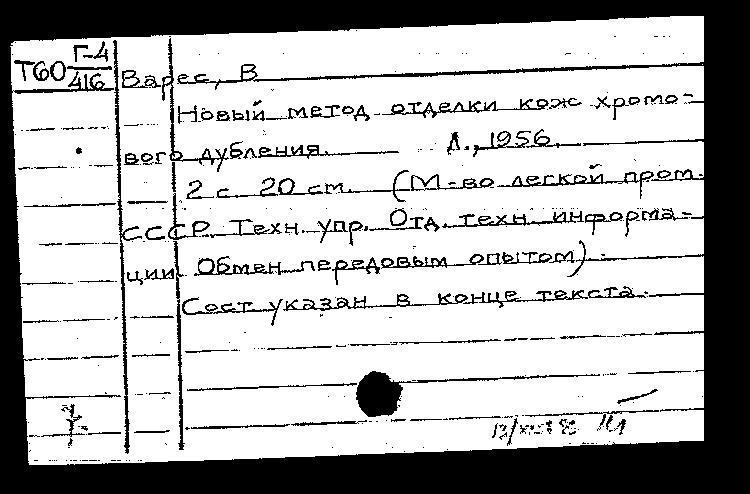 Т60 Г-4
416
Варес, В
Новый метод отделки кож хромо-
вого дубления. Л., 1956.
2 с. 20 см. (М-во легкой пром.
СССР. Техн. упр. Отд. техн. информа-
ции. Обмен передовым опытом).
Сост указан в конце текста.